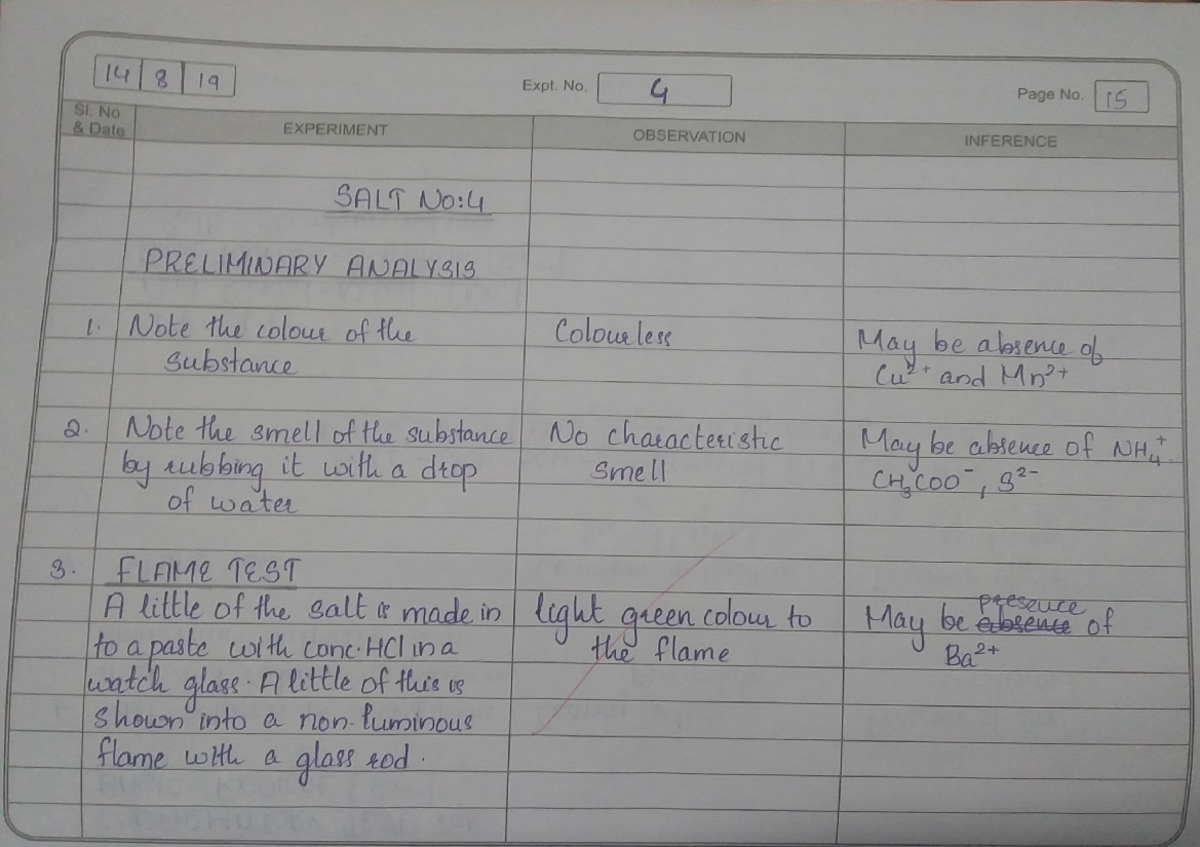 14 8 19
Expt. No. 4
Page No. 15
Sl. No. & Date EXPERIMENT OBSERVATION INFERENCE
SALT No:4
PRELIMINARY ANALYSIS
1. Note the colour of the Colourless May be absence of
substance Cu²⁺ and Mn²⁺
2. Note the smell of the substance No characteristic May be absence of NH₄⁺
by rubbing it with a drop smell CH₃COO⁻, S²⁻
of water
3. FLAME TEST
A little of the salt is made in light green colour to May be absence presence of
to a paste with conc. HCl in a the flame Ba²⁺
watch glass. A little of this is
shown into a non-luminous
flame with a glass rod.